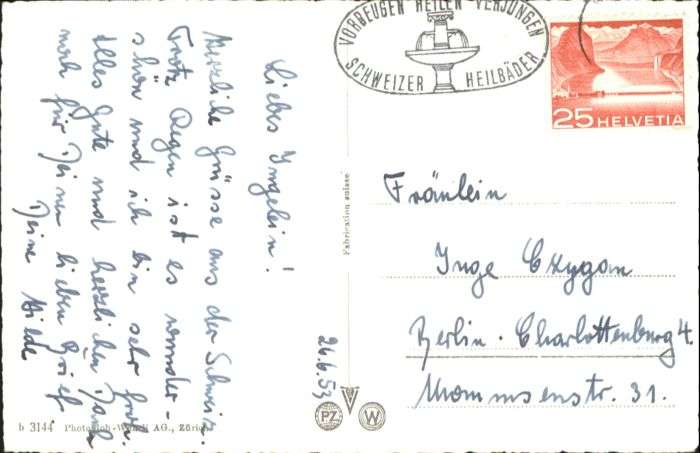 Liebes Ingelein!
Herzliche Grüsse aus der Schweiz.
Trotz Regen ist es wunder-
schön und ich bin sehr froh.
Alles Gute und herzlichen Dank
noch für Deinen lieben Brief
Deine Hilde
26.6.53
b 3144 Photoglob-Wehrli AG., Zürich
Fabrication suisse
PZ
W
VORBEUGEN HEILEN VERJÜNGEN
SCHWEIZER HEILBÄDER
25 HELVETIA
Fräulein
Inge Czygan
Berlin-Charlottenburg 4
Mommsenstr. 31.